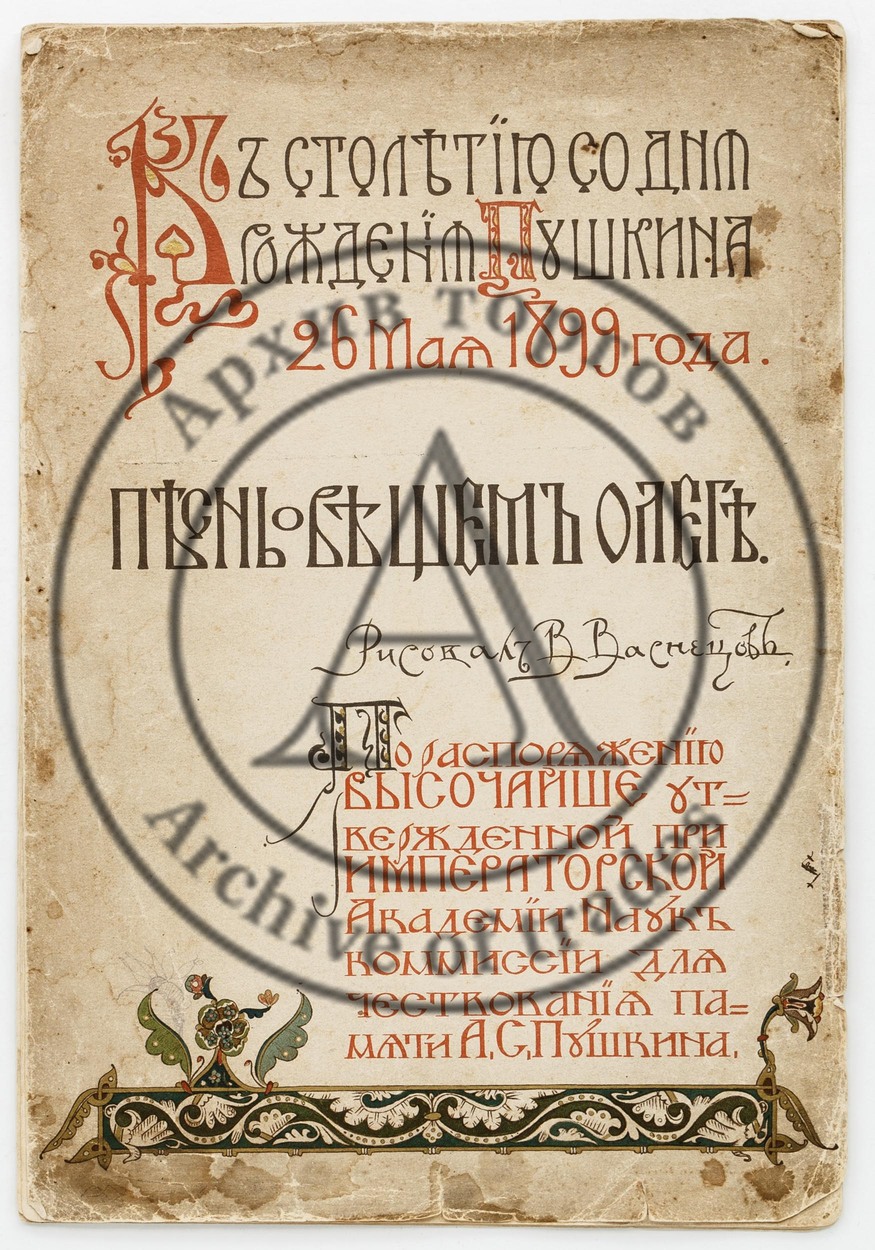 Къ столѣтїю со дня
рожденїя Пушкина
26 Мая 1899 года.
Пѣснь о вѣщемъ Олегѣ.
Рисовалъ В Васнецовъ.
По распоряженїю
высочайше ут=
вержденной при
императорской
Академїи Наукъ
коммиссїи для
чествованїя па=
мяти А.С.Пушкина.
Архив торгов
Archive of trades